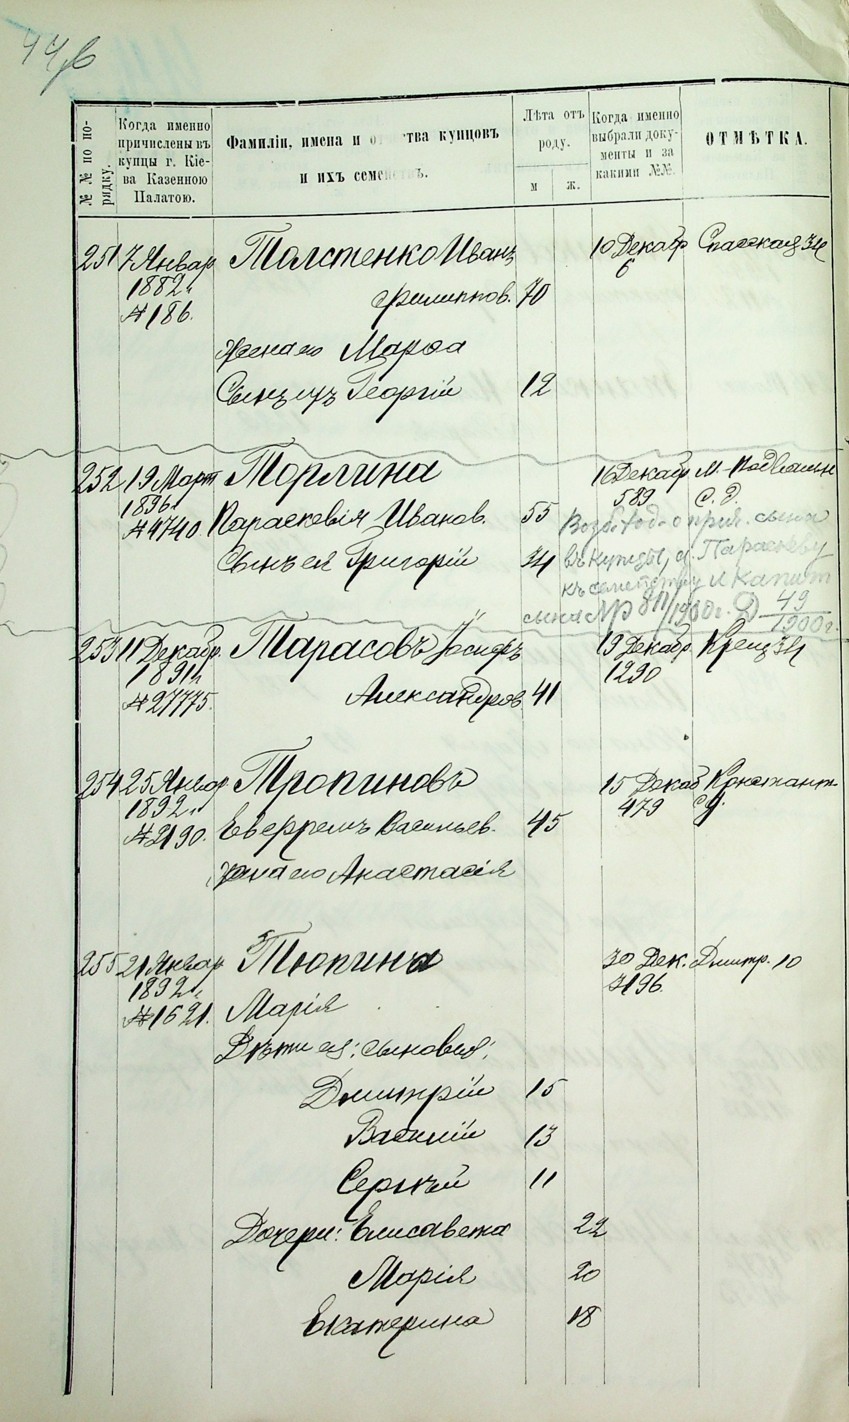 44
№№ по по-
рядку.
Когда именно
причислены въ
купцы г. Кіе-
ва Казенною
Палатою.
Фамиліи, имена и отчества купцовъ
и ихъ семействъ.
Лѣта отъ
роду.
м
ж.
Когда именно
выбрали доку-
менты и за
какими №№.
ОТМѢТКА.
251 7 Январ Толстенко Иванъ 10 Декабр Спасская
1882 6
№ 186. Филиппов. 70
Жена его Марфа
Сынъ ихъ Георгій 12
252 19 Март Торлина 16 Декабр М.-Подвальн
1896 589 с. д.
№ 4740. Параскевія Иванов. 55
сына
Сынъ ея Григорій 34 въ купцы, а Параскеву
къ семейству и капит
сына № 811/1900 г. 49/1900 г.
253 11 Декабр. Тарасовъ Іосифъ 19 Декабр. Крещ
1891 1290
№ 27775. Александров 41
254 25 Январ Тропиновъ 15 Декаб Константи.
1892 479 с. д.
№ 2190. Евфремъ Васильев. 45
жена его Анастасія
255 21 Январ Тюпина 30 Дек. Дмитр. 10
1892 7196.
№ 1621. Марія
Дѣти ея: сыновья:
Дмитрій 15
Василій 13
Сергѣй 11
Дочери: Елисавета 22
Марія 20
Екатерина 18